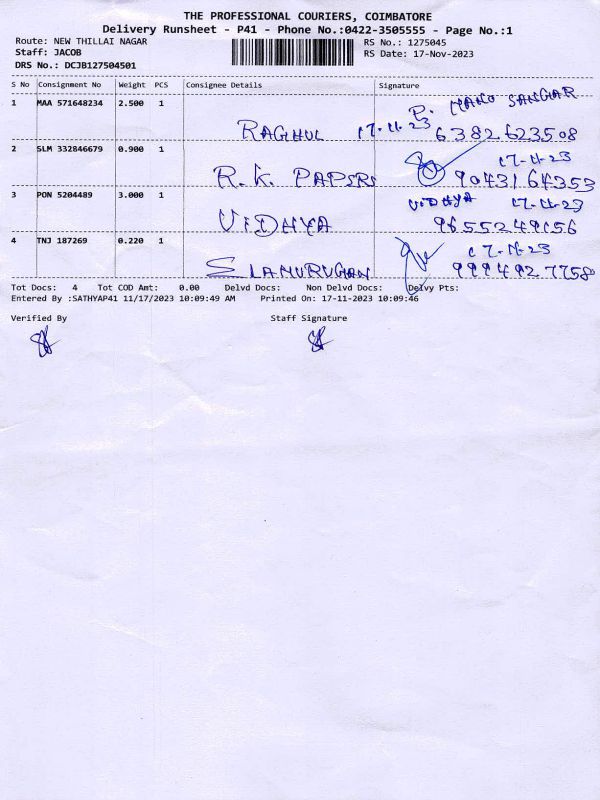 THE PROFESSIONAL COURIERS, COIMBATORE
Delivery Runsheet - P41 - Phone No.:0422-3505555 - Page No.:1
Route: NEW THILLAI NAGAR RS No.: 1275045
Staff: JACOB RS Date: 17-Nov-2023
DRS No.: DCJB127504501
S No Consignment No Weight PCS Consignee Details Signature
1 MAA 571648234 2.500 1 P. MANO SANGAR
RAGHUL 17.11.23 6382623508
2 SLM 332846679 0.900 1 17-11-23
R.K. PAPERS 9043164353
3 PON 5204489 3.000 1 VIDHYA 17-11-23
VIDHYA 9655249056
4 TNJ 187269 0.220 1 17-11-23
9994927758
Tot Docs: 4 Tot COD Amt: 0.00 Delvd Docs: Non Delvd Docs: Delvy Pts:
Entered By :SATHYAP41 11/17/2023 10:09:49 AM Printed On: 17-11-2023 10:09:46
Verified By Staff Signature